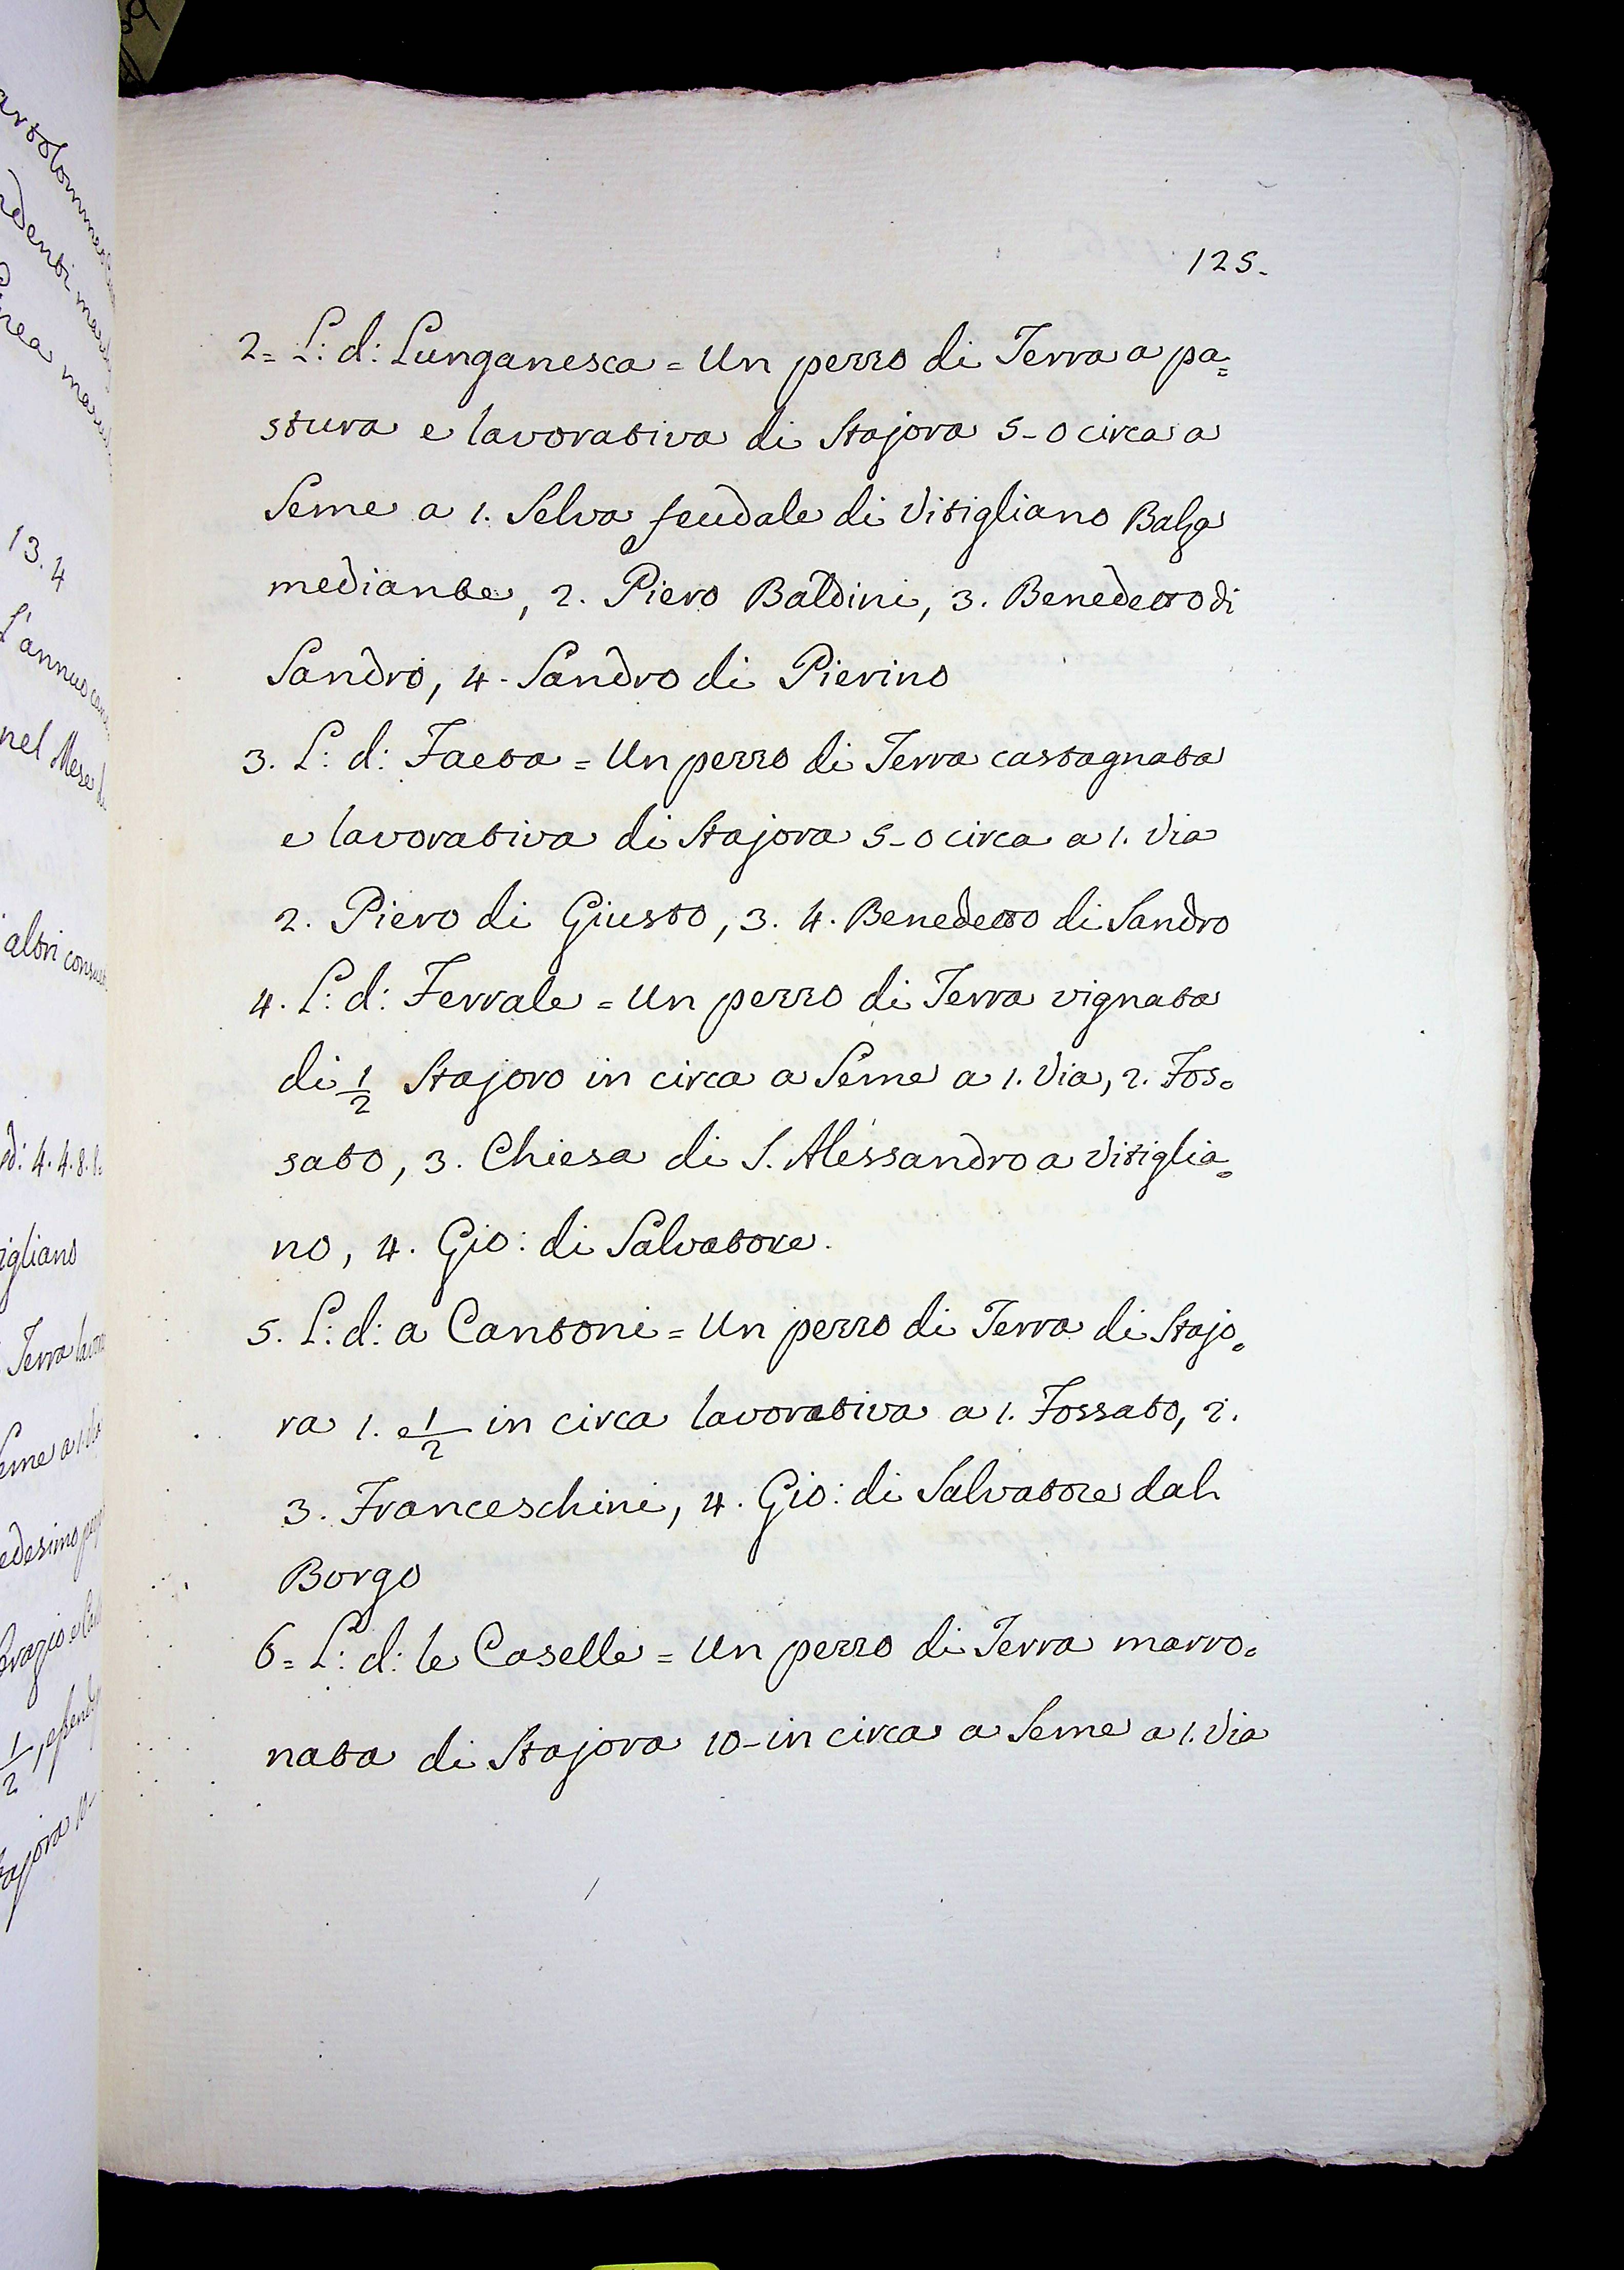 125.
2= L: d: Lunganesca = Un pezzo di Terra a pa=
stura e lavorativa di Stajora 5-0 circa a
Seme a 1. Selva feudale di Vitigliano Balza
mediante, 2. Piero Baldini, 3. Benedetto di
Sandro, 4. Sandro di Pierino
3. L: d: Faeta = Un pezzo di Terra castagnata
e lavorativa di Stajora 5-0 circa a 1. Via
2. Piero di Giusto, 3. 4. Benedetto di Sandro
4. L: d: Ferrale = Un pezzo di Terra vignata
di 1/2 Stajoro in circa a Seme a 1. Via, 2. Fos=
sato, 3. Chiesa di S. Alessandro a Vitiglia=
no, 4. Gio: di Salvatore.
5. L: d: a Cantoni = Un pezzo di Terra di Stajo=
ra 1. e 1/2 in circa lavorativa a 1. Fossato, 2.
3. Franceschini, 4. Gio: di Salvatore dal
Borgo
6= L: d: le Caselle = Un pezzo di Terra marro=
nata di Stajora 10- in circa a Seme a 1. Via
13.4
L'annuo
nel Mese
altri
4.4.8.
Terra
1/2